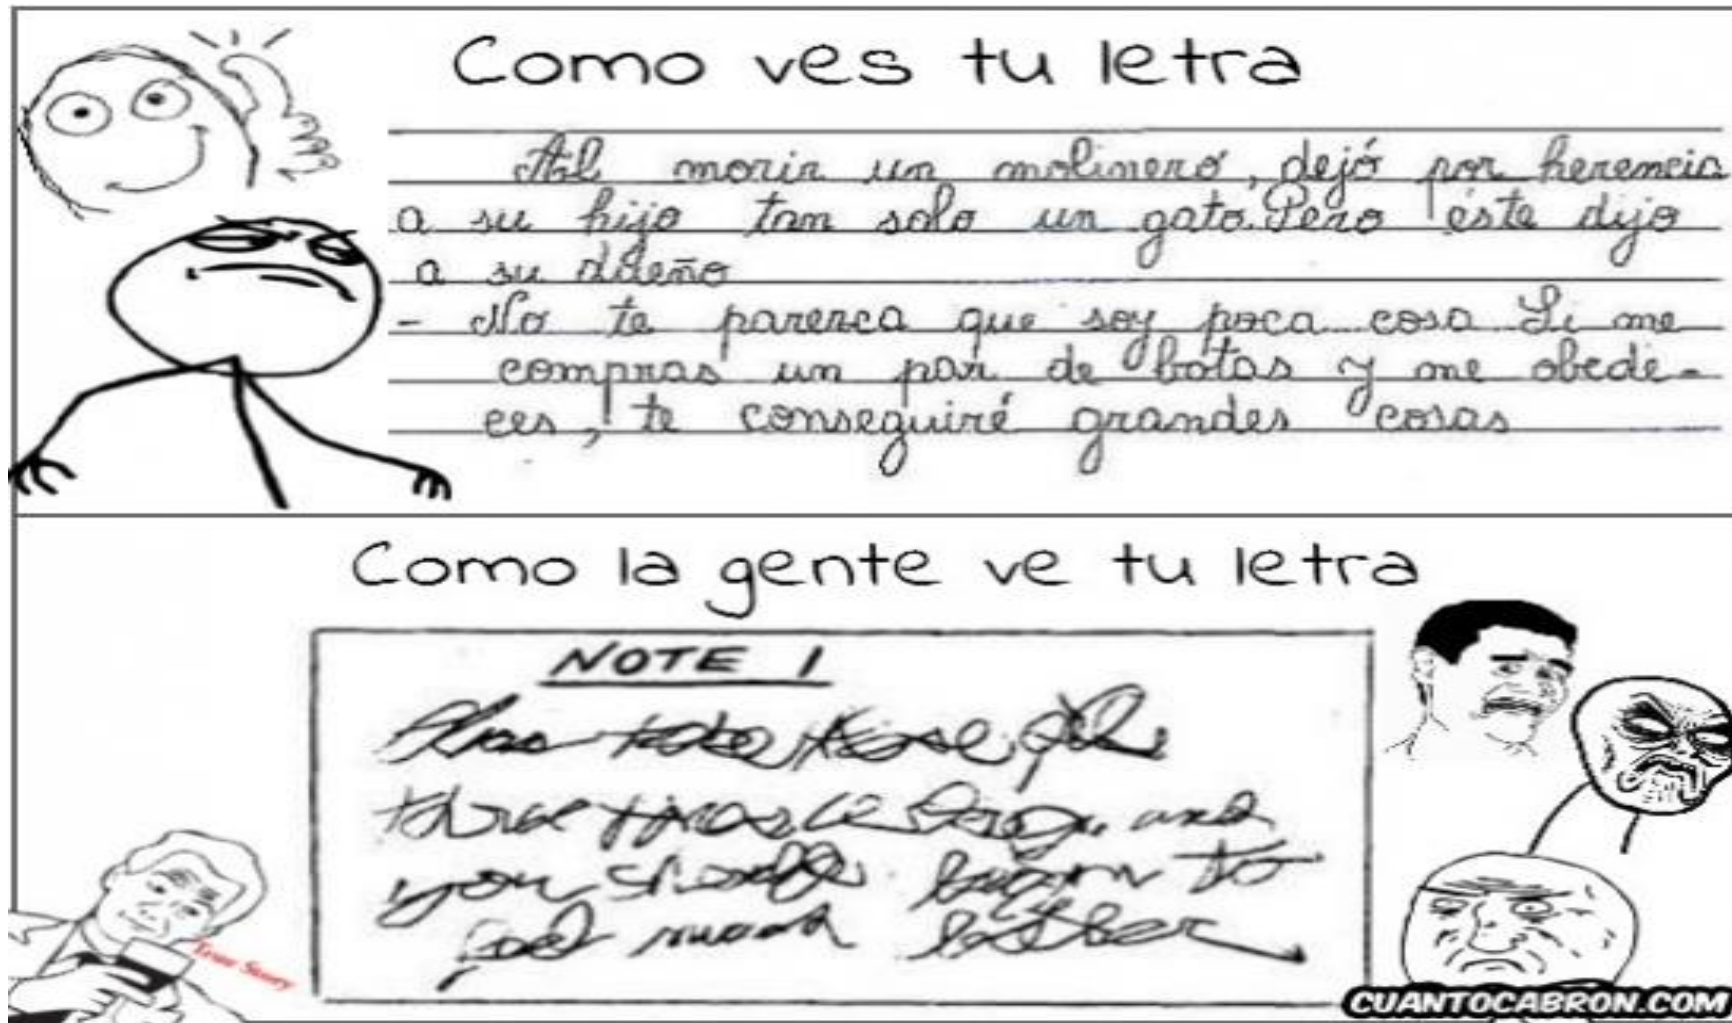 Como ves tu letra
Al morir un molinero, dejó por herencia
a su hijo tan solo un gato. Pero éste dijo
a su dueño
- No te parezca que soy poca cosa Si me
compras un par de botas y me obede-
ces, te conseguiré grandes cosas
Como la gente ve tu letra
NOTE 1
take
three and
you should begin to
feel much better
CUANTOCABRON.COM